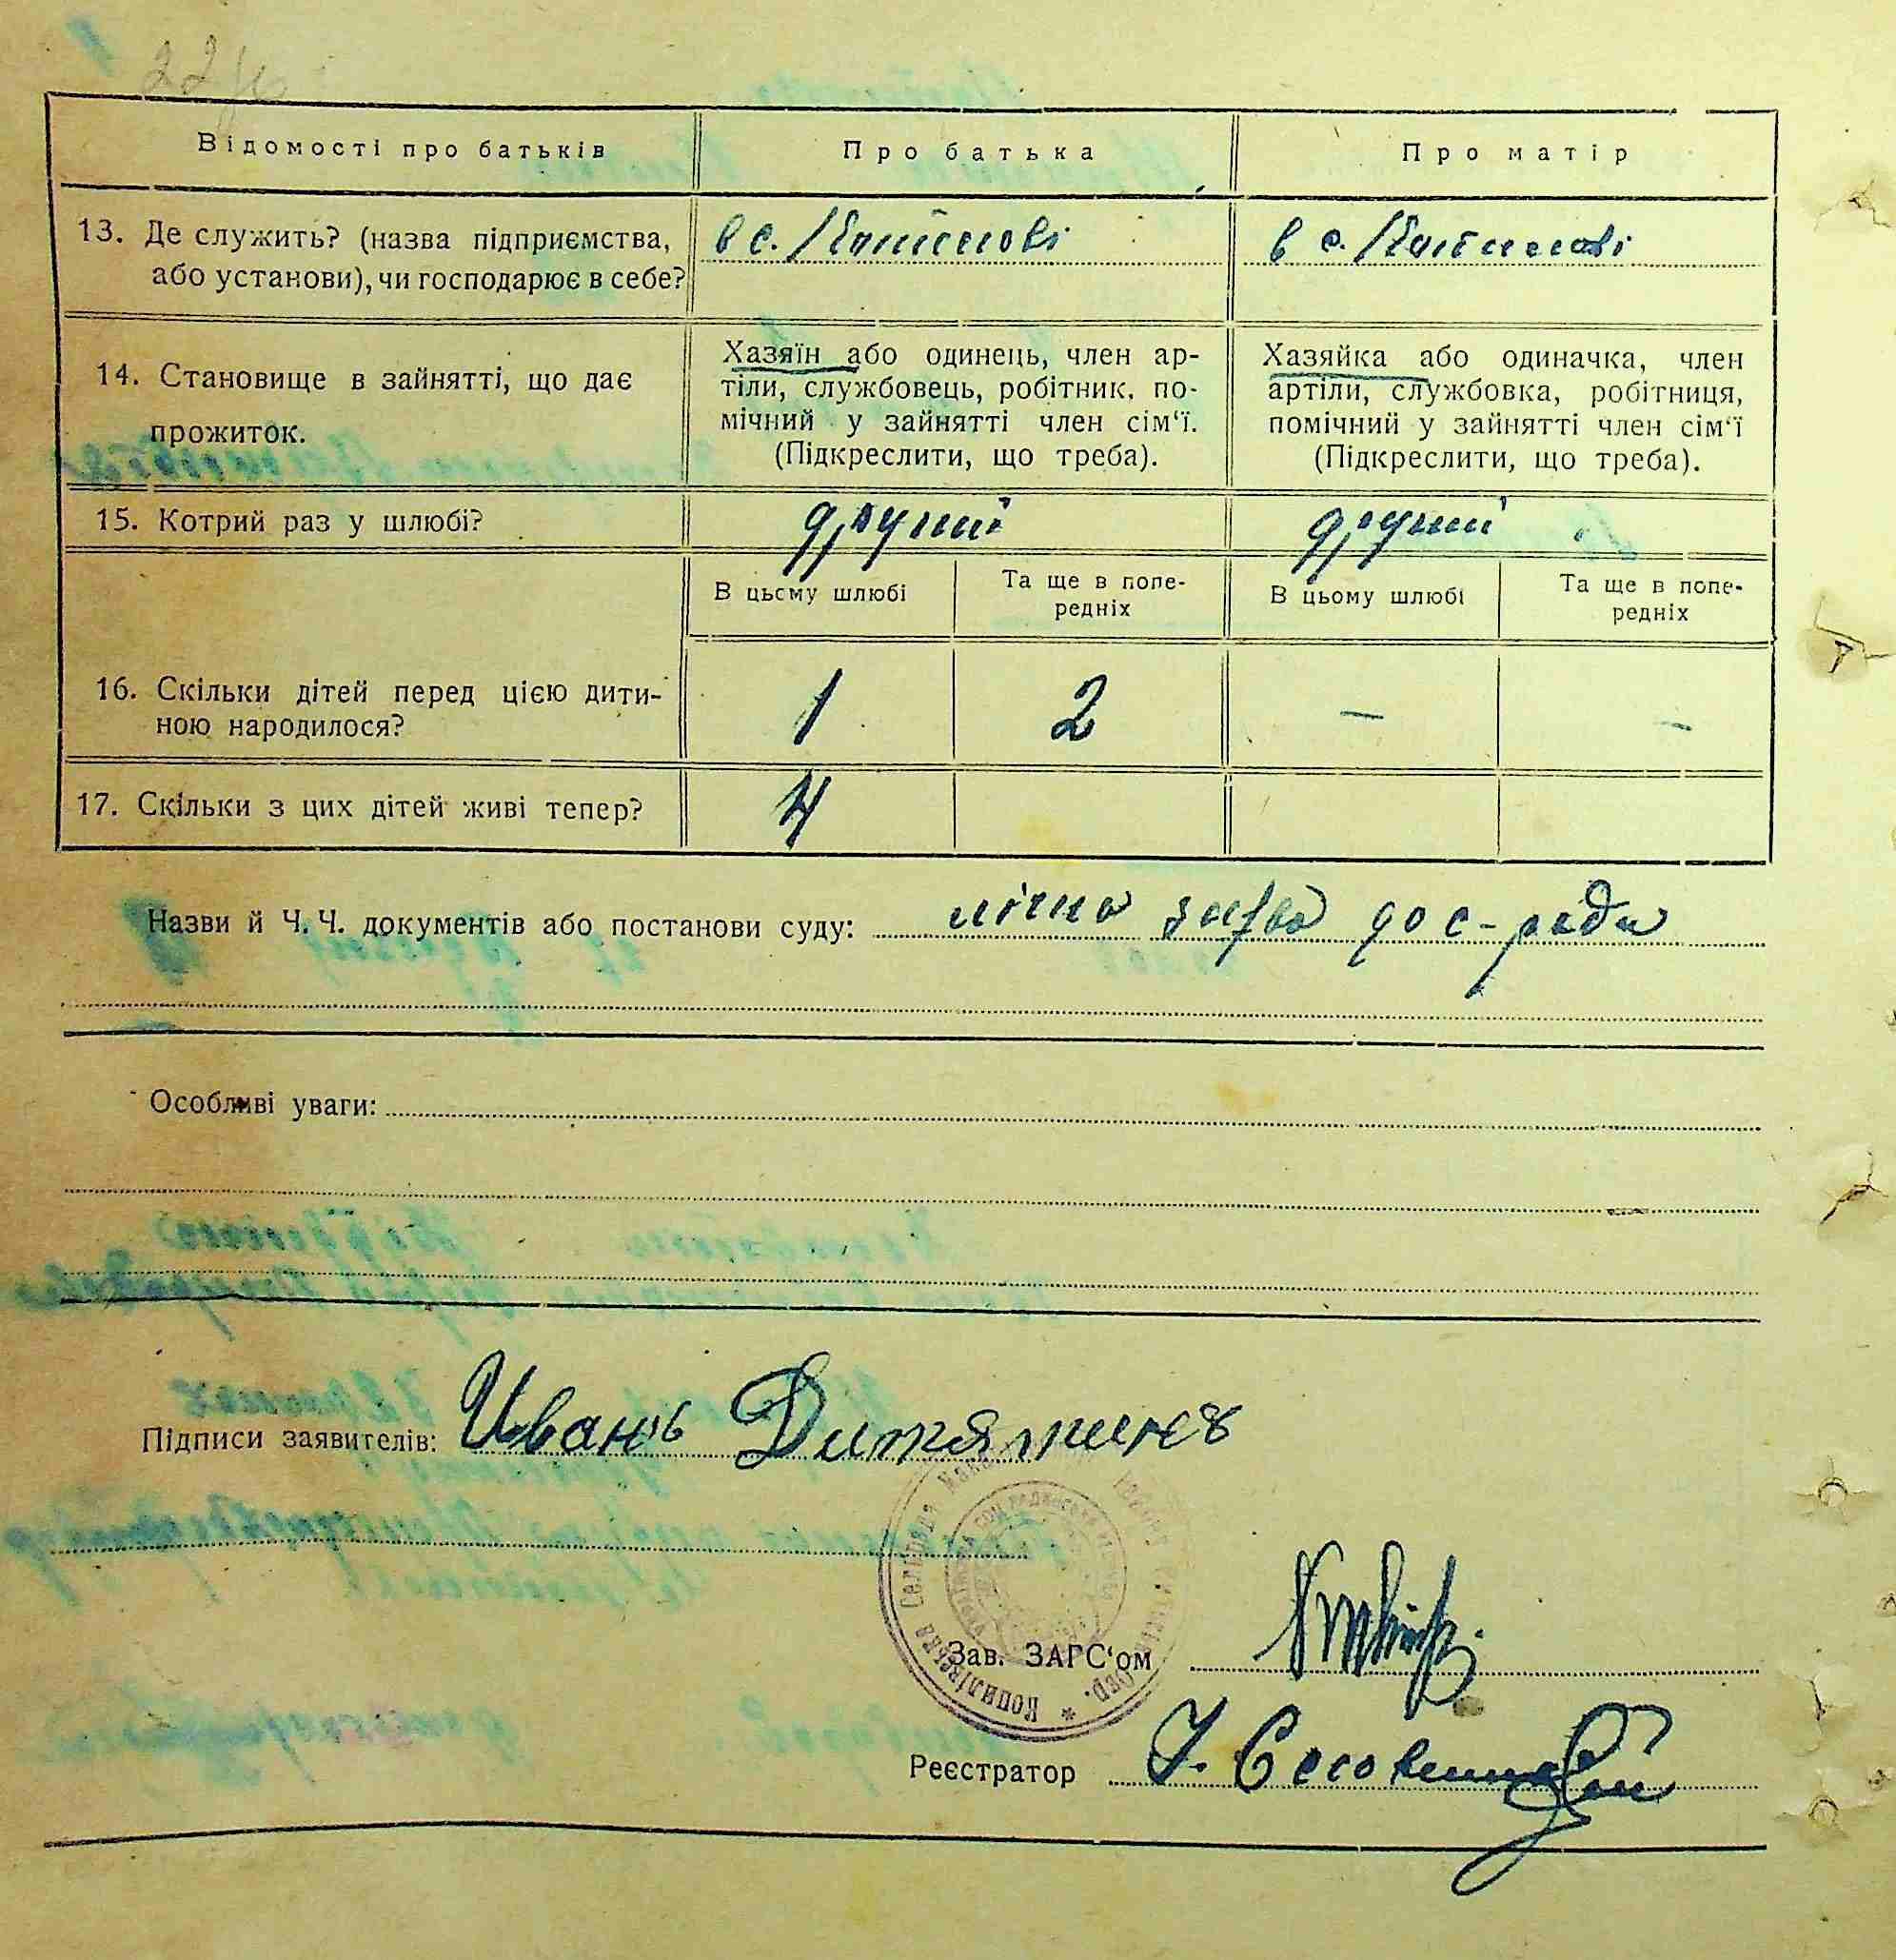 22
Відомості про батьків
Про батька
Про матір
13. Де служить? (назва підприємства,
або установи), чи господарює в себе?
в с. Копилові
в с. Копилові
14. Становище в зайнятті, що дає
прожиток.
Хазяїн або одинець, член ар-
тіли, службовець, робітник, по-
мічний у зайнятті член сім'ї.
(Підкреслити, що треба).
Хазяйка або одиначка, член
артіли, службовка, робітниця,
помічний у зайнятті член сім'ї
(Підкреслити, що треба).
15. Котрий раз у шлюбі?
другий
другий
В цьому шлюбі
Та ще в попе-
редніх
В цьому шлюбі
Та ще в попе-
редніх
16. Скільки дітей перед цією дити-
ною народилося?
1
2
—
-
17. Скільки з цих дітей живі тепер?
4
Назви й Ч. Ч. документів або постанови суду: лічна заява до с-ради
Особливі уваги:
Підписи заявителів: Иванъ
Копилівська Сельрада
Зав. ЗАГС'ом
Реєстратор